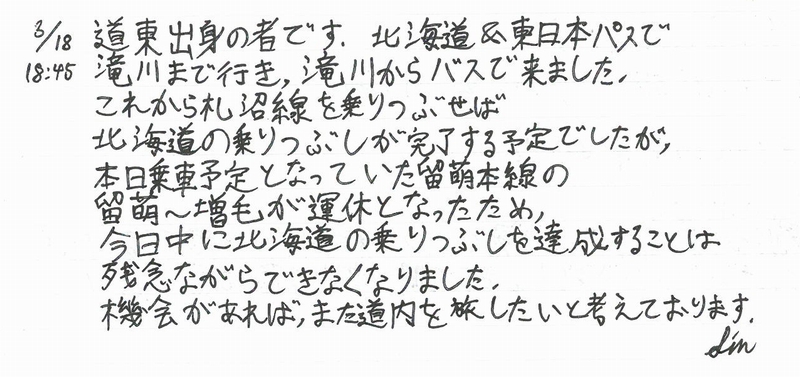 3/18 道東出身の者です. 北海道&東日本パスで
18:45 滝川まで行き, 滝川からバスで来ました.
これから札沼線を乗りつぶせば
北海道の乗りつぶしが完了する予定でしたが,
本日乗車予定となっていた留萌本線の
留萌~増毛が運休となったため,
今日中に北海道の乗りつぶしを達成することは
残念ながらできなくなりました.
機会があれば, また道内を旅したいと考えております.
Sin